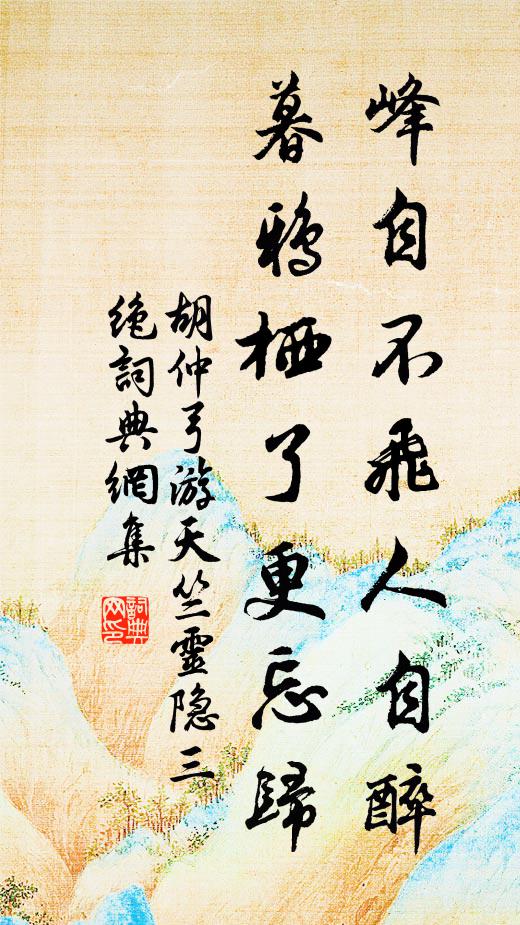 峰自不飛人自醉
暮鴉栖了更忘歸
胡仲弓游天竺靈隐三
絶詞典網集
詞典网印